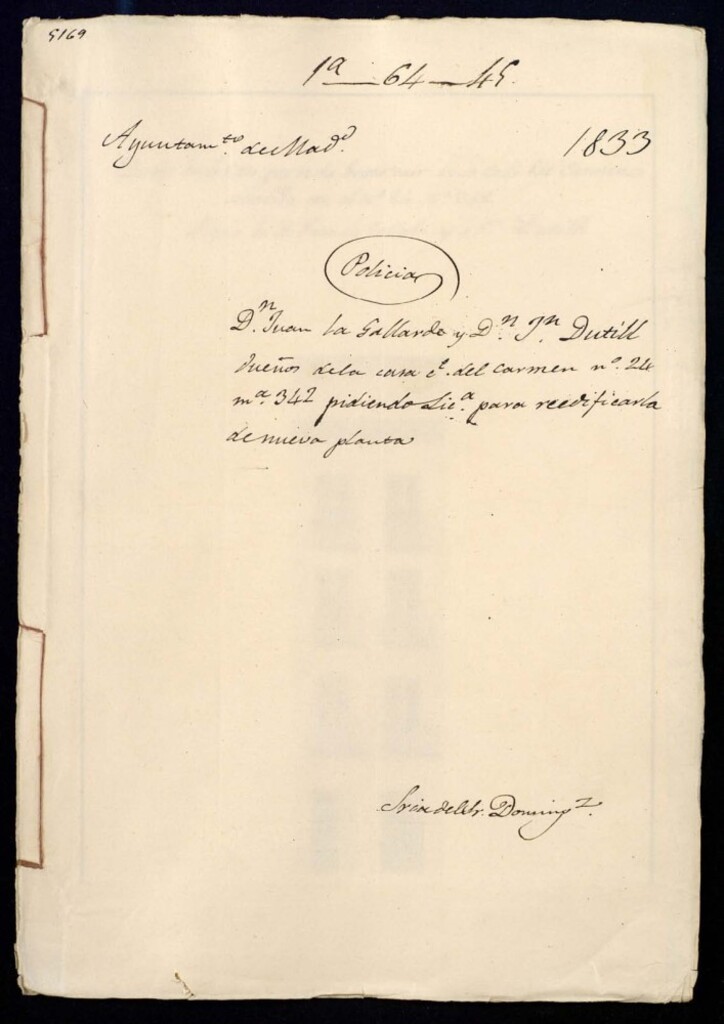 5169
1ª — 64 — 45.
Ayuntam.to de Mad.d
1833
Policia
D.n Juan La Gallarde y D.n J.n Dutill
dueños de la casa c.e del carmen n.o 24
m.a 342 pidiendo Lic.a para reedificarla
de nueva planta
Sria del Sr. Doming.z